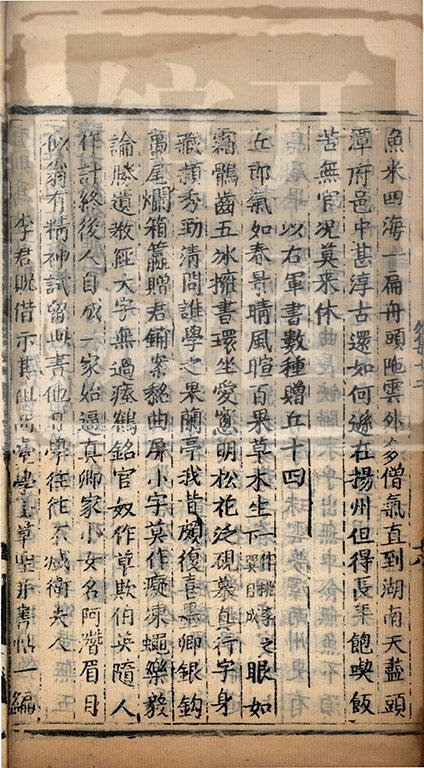 魚米四海一扁舟頭陁雲外多僧氣直到湖南天盡頭
潭府邑中甚淳古還如何遜在揚州但得長年飽喫飯
苦無官況莫來休
以右軍書數種贈丘十四
丘郎氣如春景晴風暄百果草木生眼如
霜鶻齒五冰擁書環坐愛窻明松花泛硯摹真行字身
藏穎秀勁清問誰學之果蘭亭我昔頗復喜墨卿銀鈎
蠆尾爛箱籯贈君鋪案黏曲屏小字莫作癡凍蠅樂毅
論勝遺教經大字無過瘞鶴銘官奴作草欺伯英隨人
作計終後人自成一家始逼真卿家小女名阿潛眉目
似翁有精神試留此書他日學往往不減衛夫人
李君貺借示其祖西臺學士草聖并書帖一編